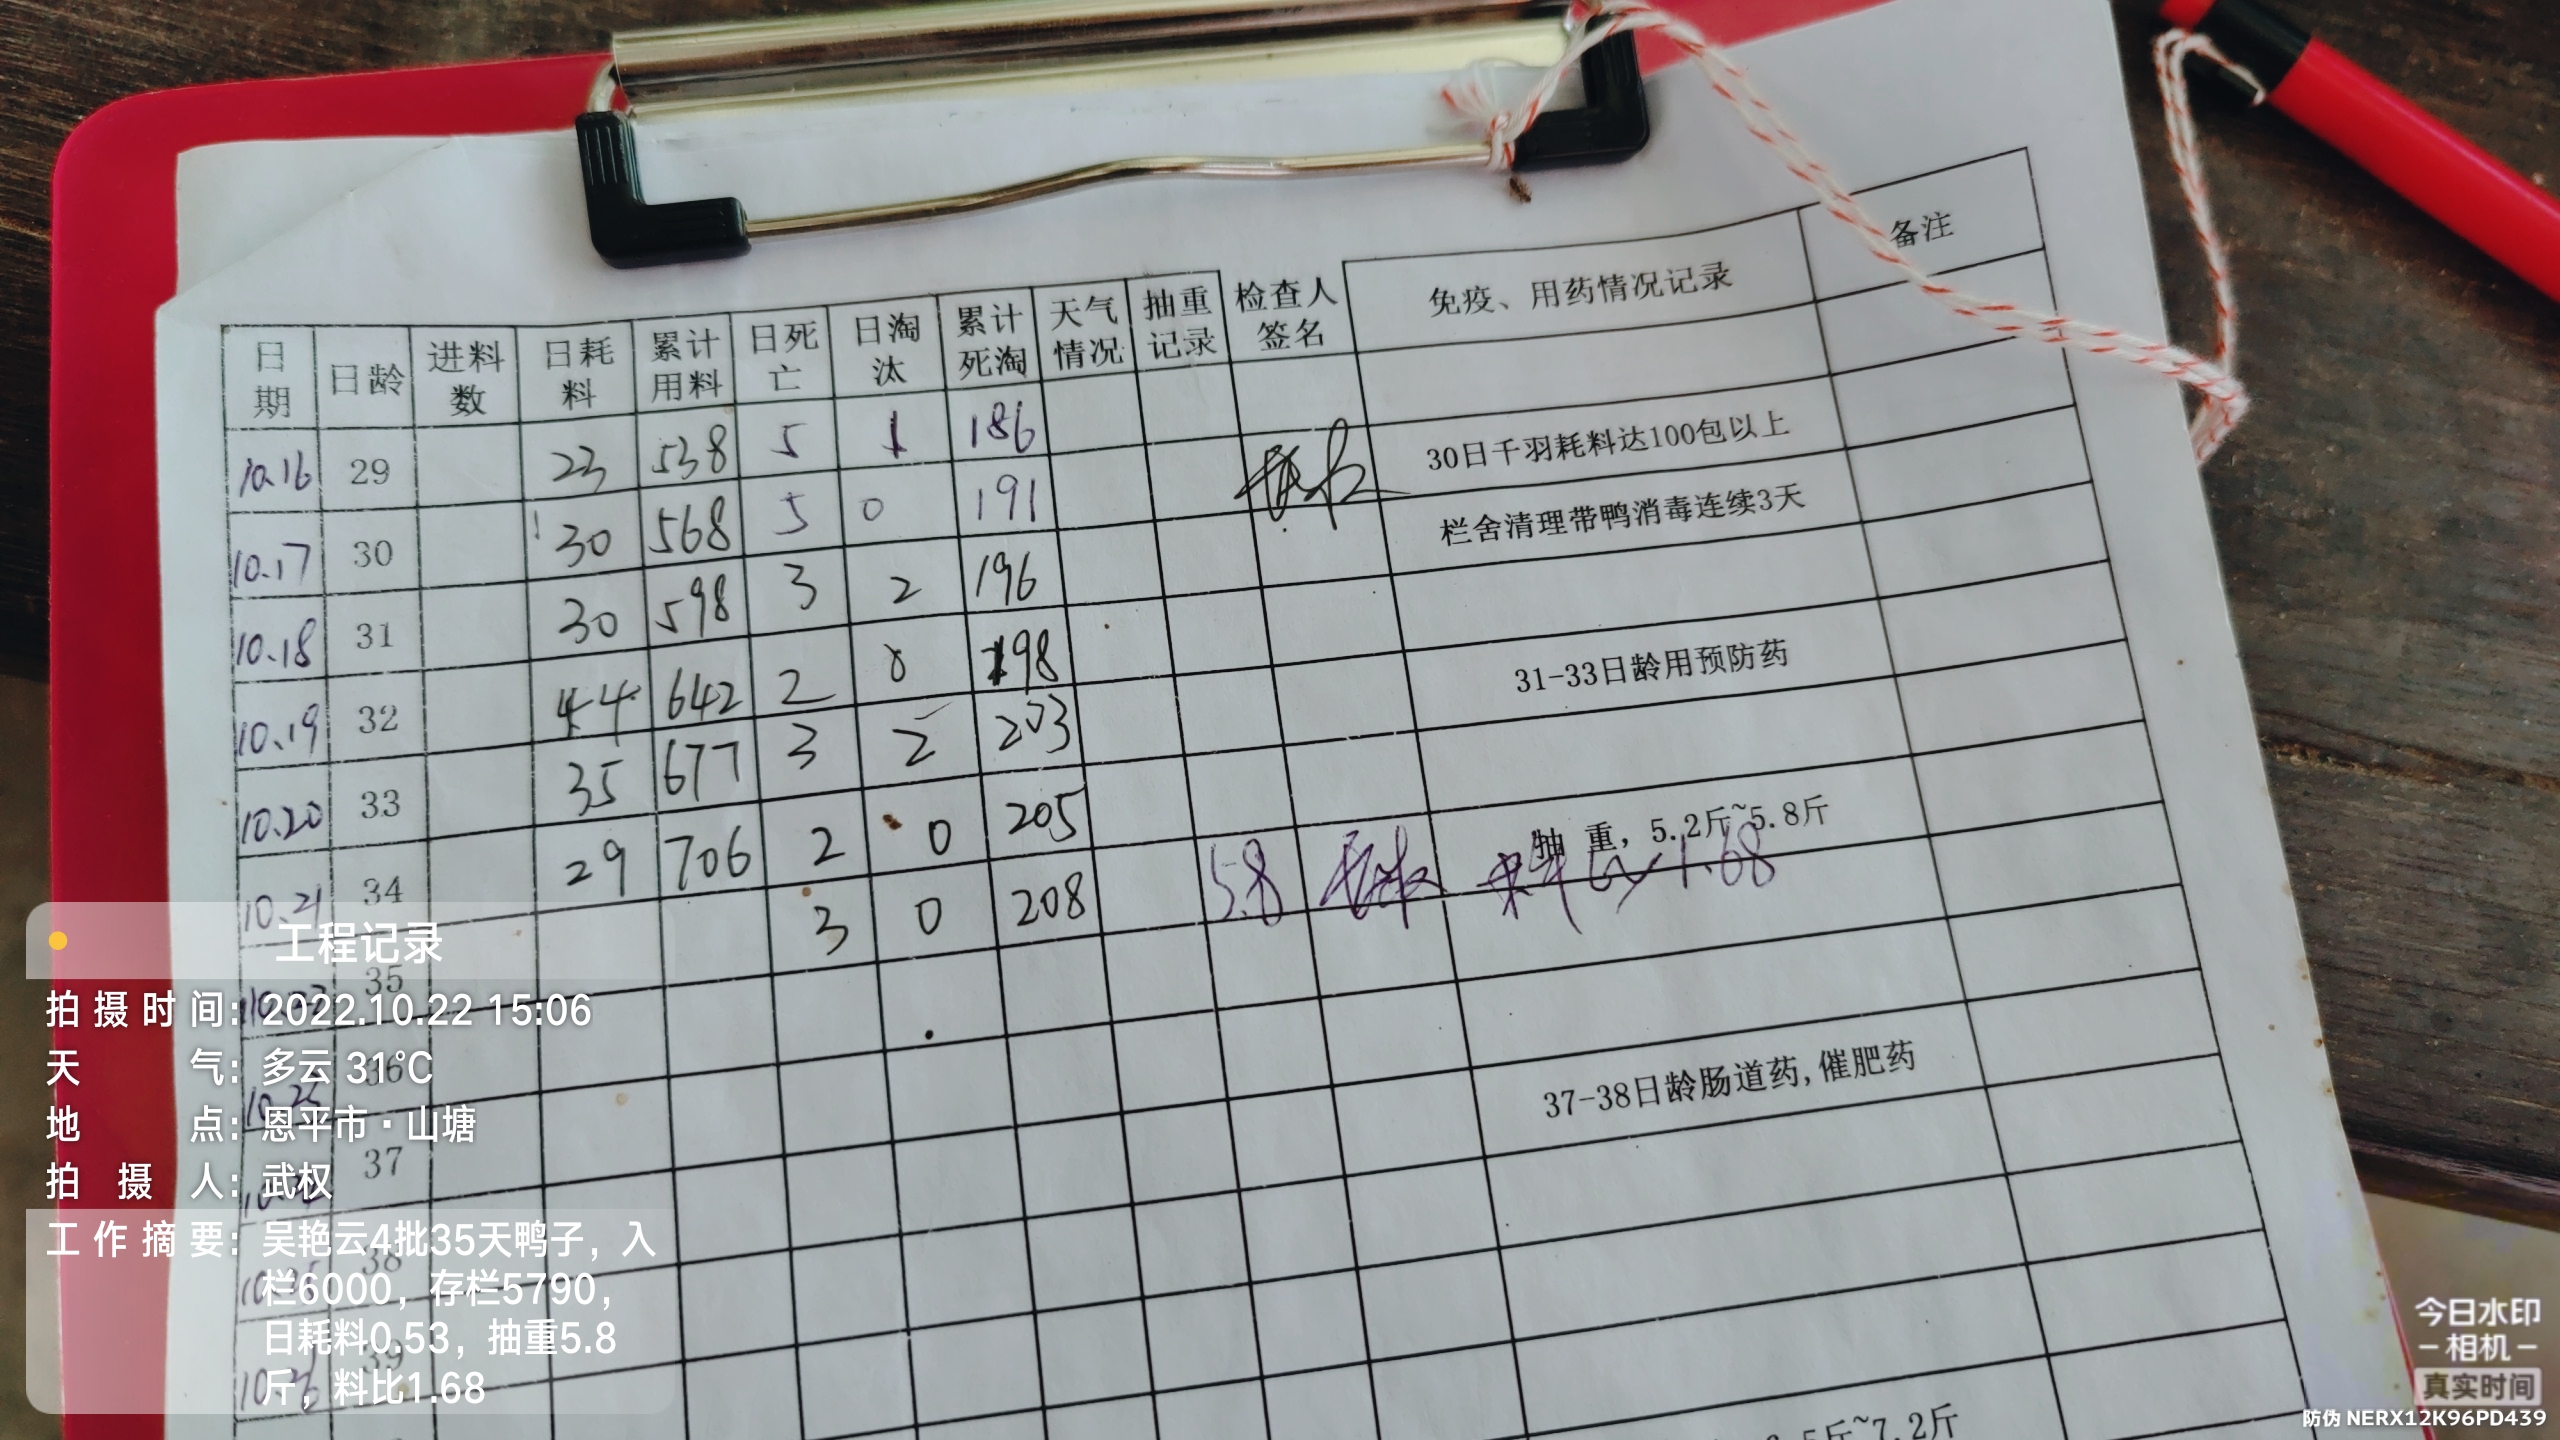 日期 日龄 进料数 日耗料 累计用料 日死亡 日淘汰 累计死淘 天气情况 抽重记录 检查人签名 免疫、用药情况记录 备注
10.16 29 23 538 5 1 186
10.17 30 30 568 5 0 191 30日千羽耗料达100包以上
10.18 31 30 598 3 2 196 栏舍清理带鸭消毒连续3天
10.19 32 44 642 2 0 198
10.20 33 35 677 3 2 203 31-33日龄用预防药
10.21 34 29 706 2 0 205
35 3 0 208 5.8 抽 重，5.2斤~5.8斤
料比1.68
36
37 37-38日龄肠道药,催肥药
38
10.26 39
5斤~7.2斤
工程记录
拍摄时间：2022.10.22 15:06
天气：多云 31℃
地点：恩平市·山塘
拍摄人：武权
工作摘要：吴艳云4批35天鸭子，入
栏6000，存栏5790，
日耗料0.53，抽重5.8
斤，料比1.68
今日水印
-相机-
真实时间
防伪 NERX12K96PD439